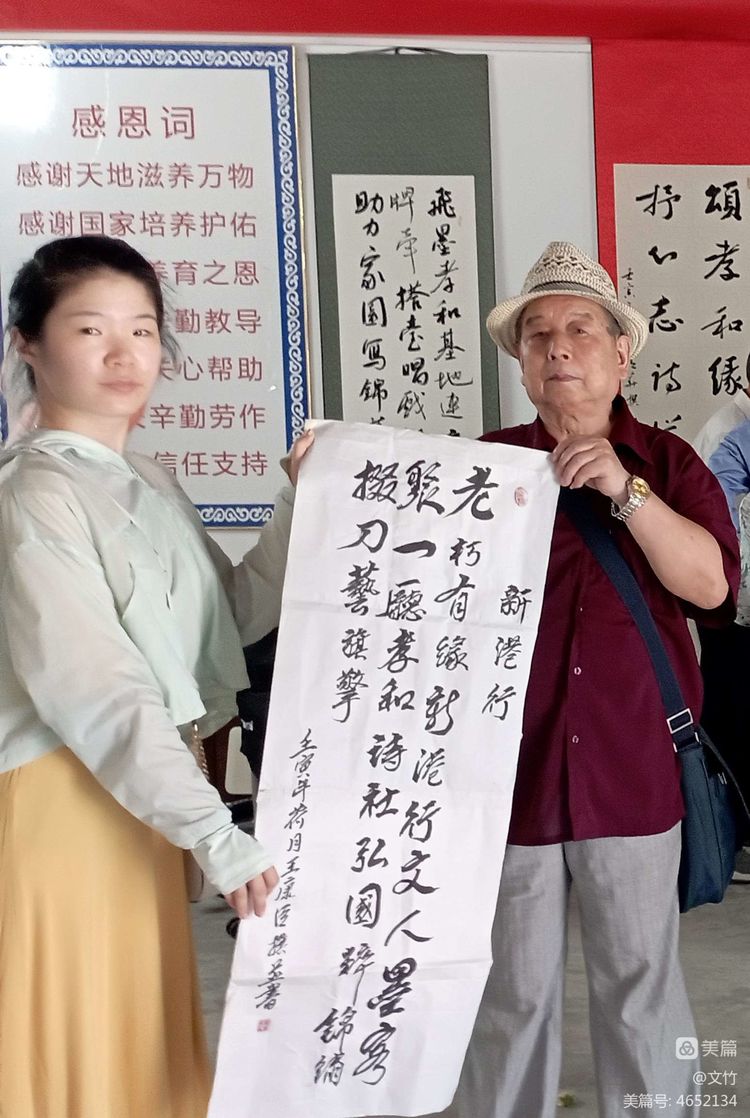 感恩词
感谢天地滋养万物
感谢国家培养护佑
养育之恩
勤教导
关心帮助
辛勤劳作
信任支持
飛墨孝和基地連
牌牽搭臺唱戲
助力家國寫錦
頌孝和缘
抒心志詩
新港行
老朽有缘新港行文人墨客
聚一廳孝和詩社弘國粹錦繡
掇刀藝旗擎
壬寅年荷月王康臣撰并書
美篇
@文竹
美篇号: 4652134